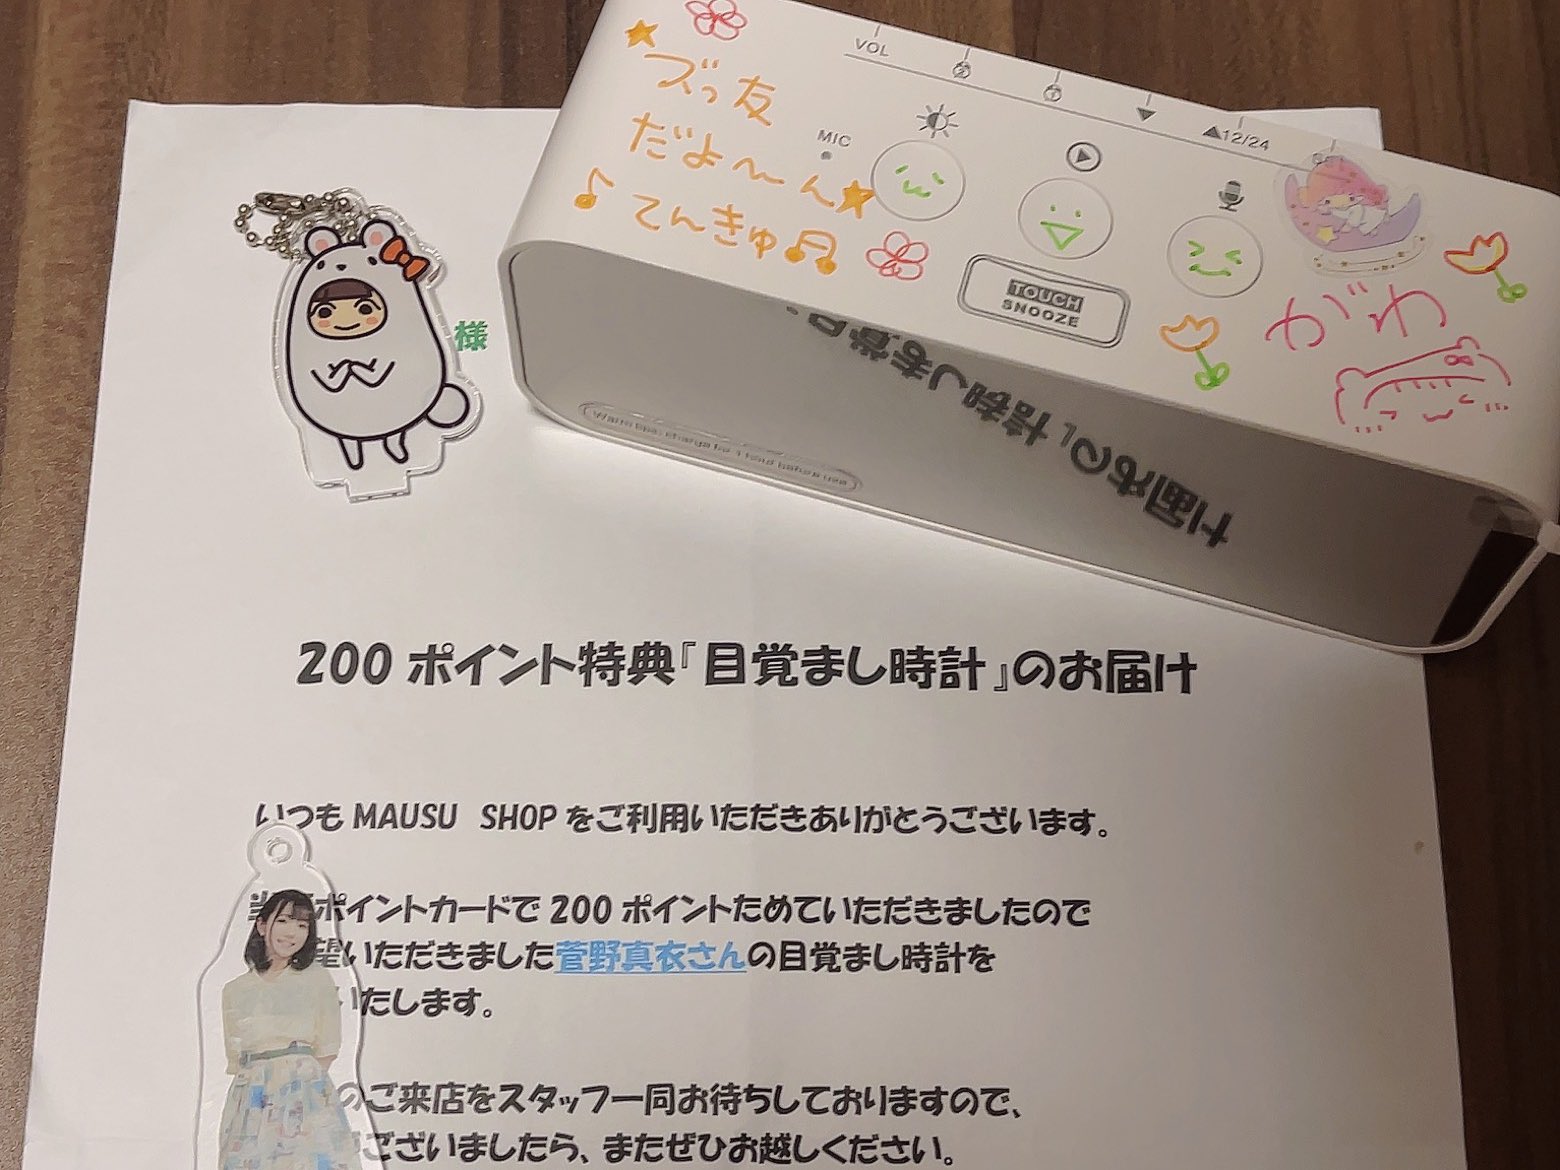 ズっ友
だよ〜ん
てんきゅ
VOL
MIC
12/24
TOUCH
SNOOZE
がわ
様
目覚まし時計』のお届け
200ポイント特典『目覚まし時計』のお届け
いつもMAUSU SHOPをご利用いただきありがとうございます。
ポイントカードで200ポイントためていただきましたので
望いただきました菅野真衣さんの目覚まし時計を
いたします。
のご来店をスタッフ一同お待ちしておりますので、
ございましたら、またぜひお越しください。